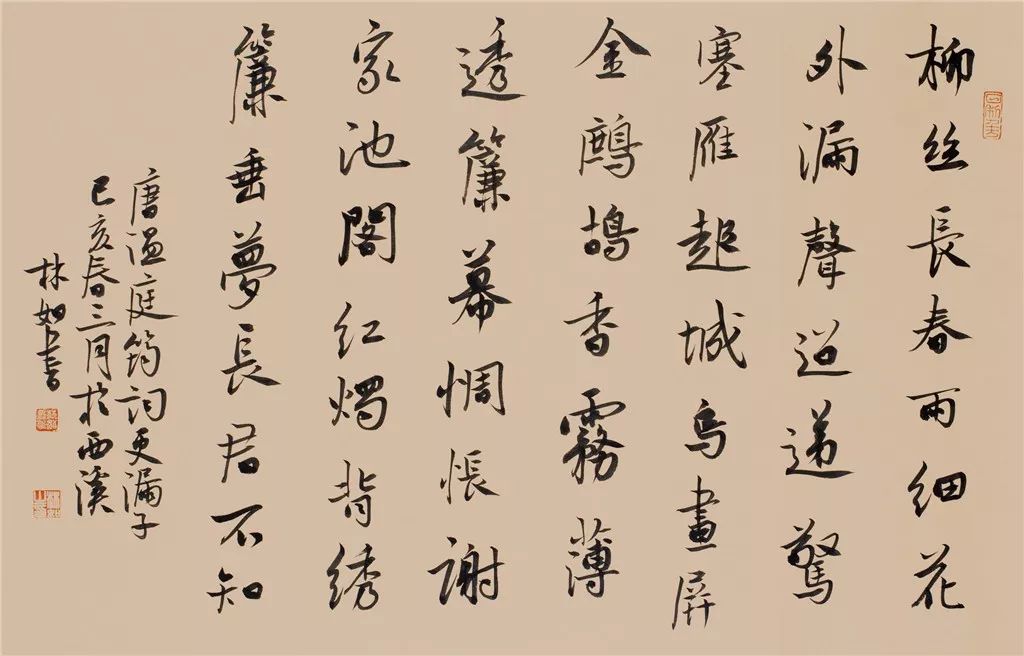 柳丝長春雨细花
外漏聲迢递驚
塞雁起城烏畫屏
金鷓鴣香霧薄
透簾幕惆悵謝
家池閣红燭背绣
簾垂夢長君不知
唐温庭筠词更漏子
己亥春三月於西溪
林如書